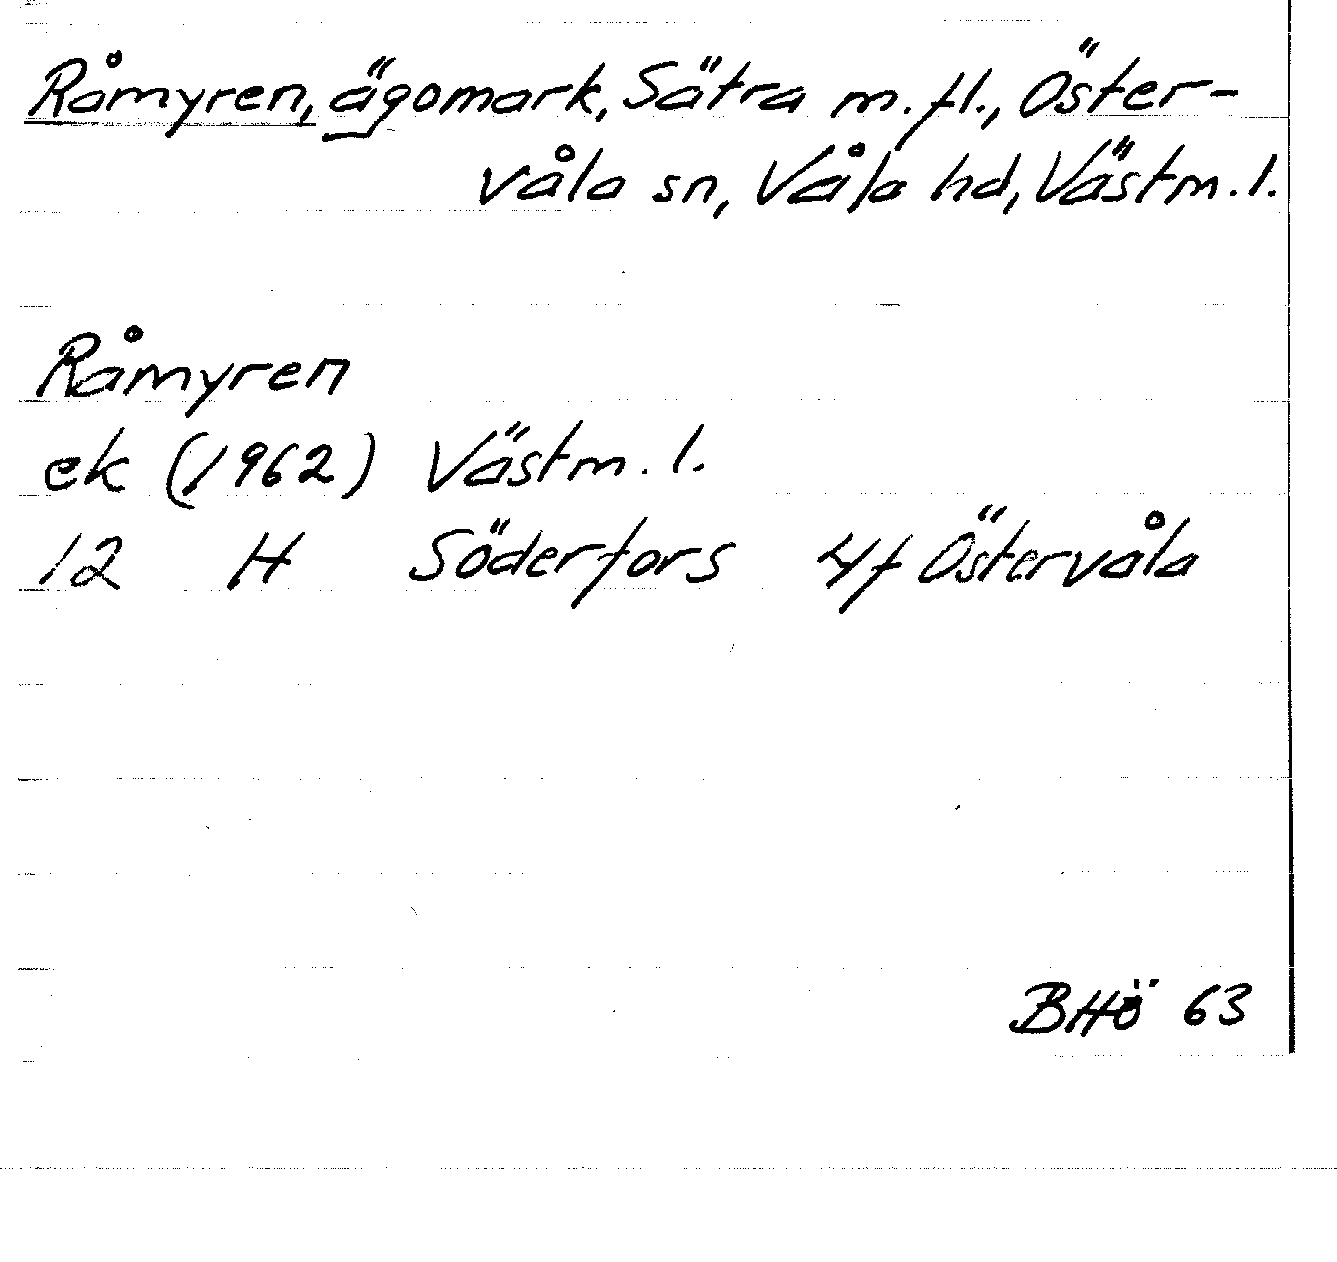 Råmyren, ägomark, Sätra m.fl., Öster-
våla sn, Våla hd, Västm.l.
Råmyren
ek (1962) Västm. l.
12 H Söderfors 4f Östervåla
BHö 63